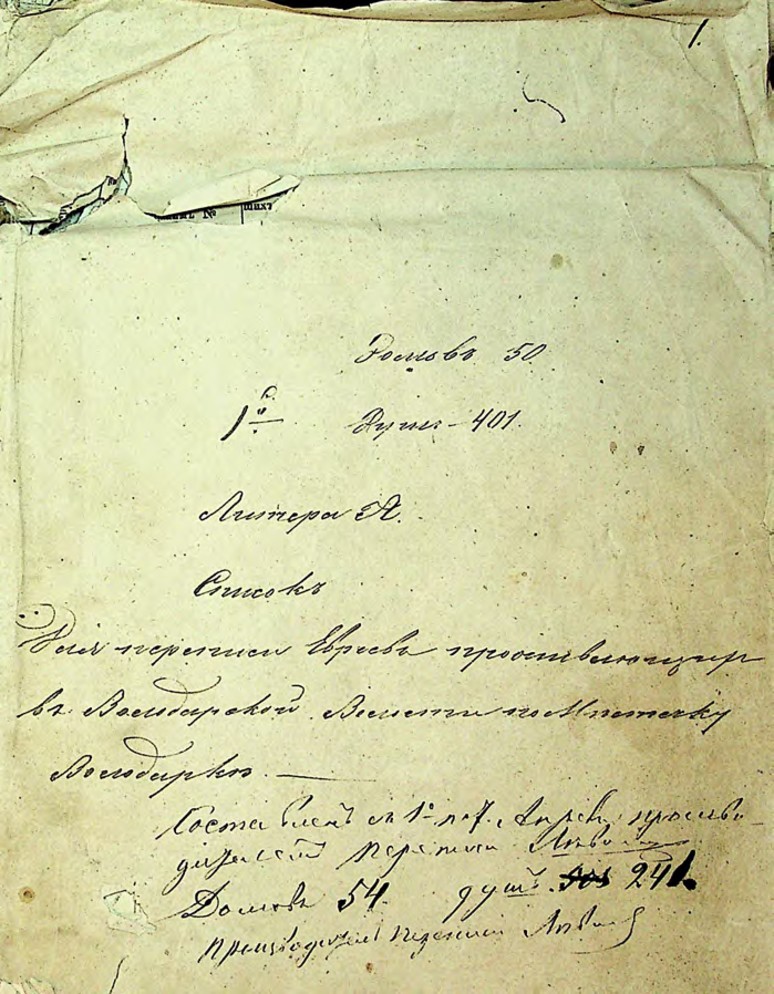 1.
Домовъ 50
1й Душъ - 401.
Литера А.
Списокъ
Для переписи Евреевъ проживающихъ
въ Володарской Волости по Мѣстечку
Володаркѣ.
Составленъ съ 1º по 7. производи
переписи
Домовъ 54. душъ. 241.
Производитель переписи